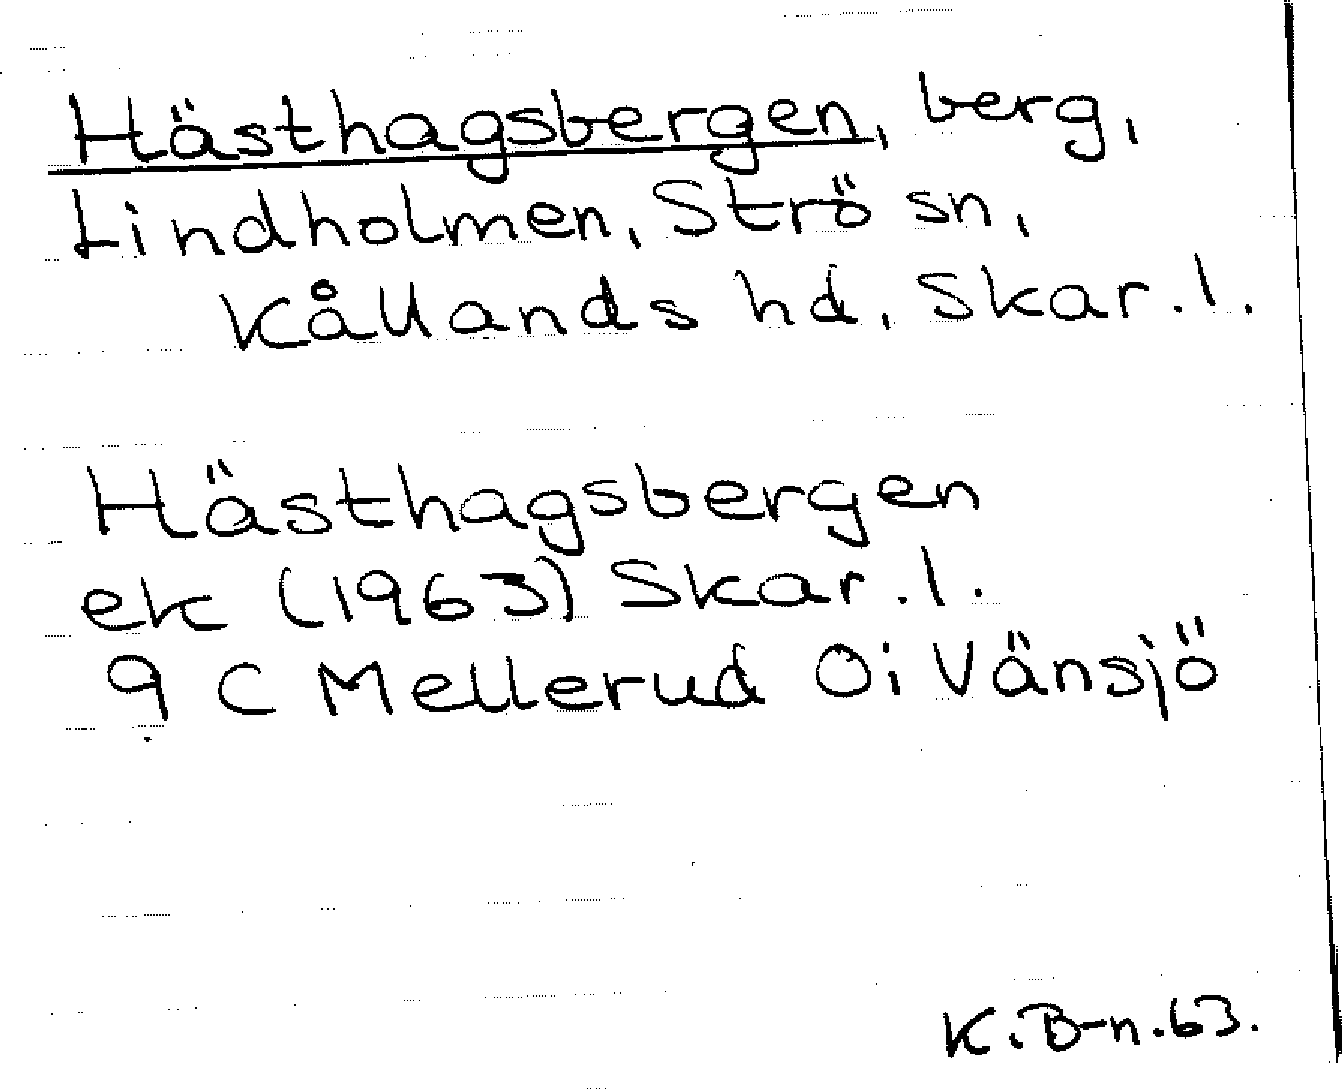 Hästhagsbergen, berg,
Lindholmen, Strö sn,
Kållands hd, Skar. l.
Hästhagsbergen
ek (1963) Skar. l.
9 C Mellerud Öi Vänsjö
K. B-n. 63.